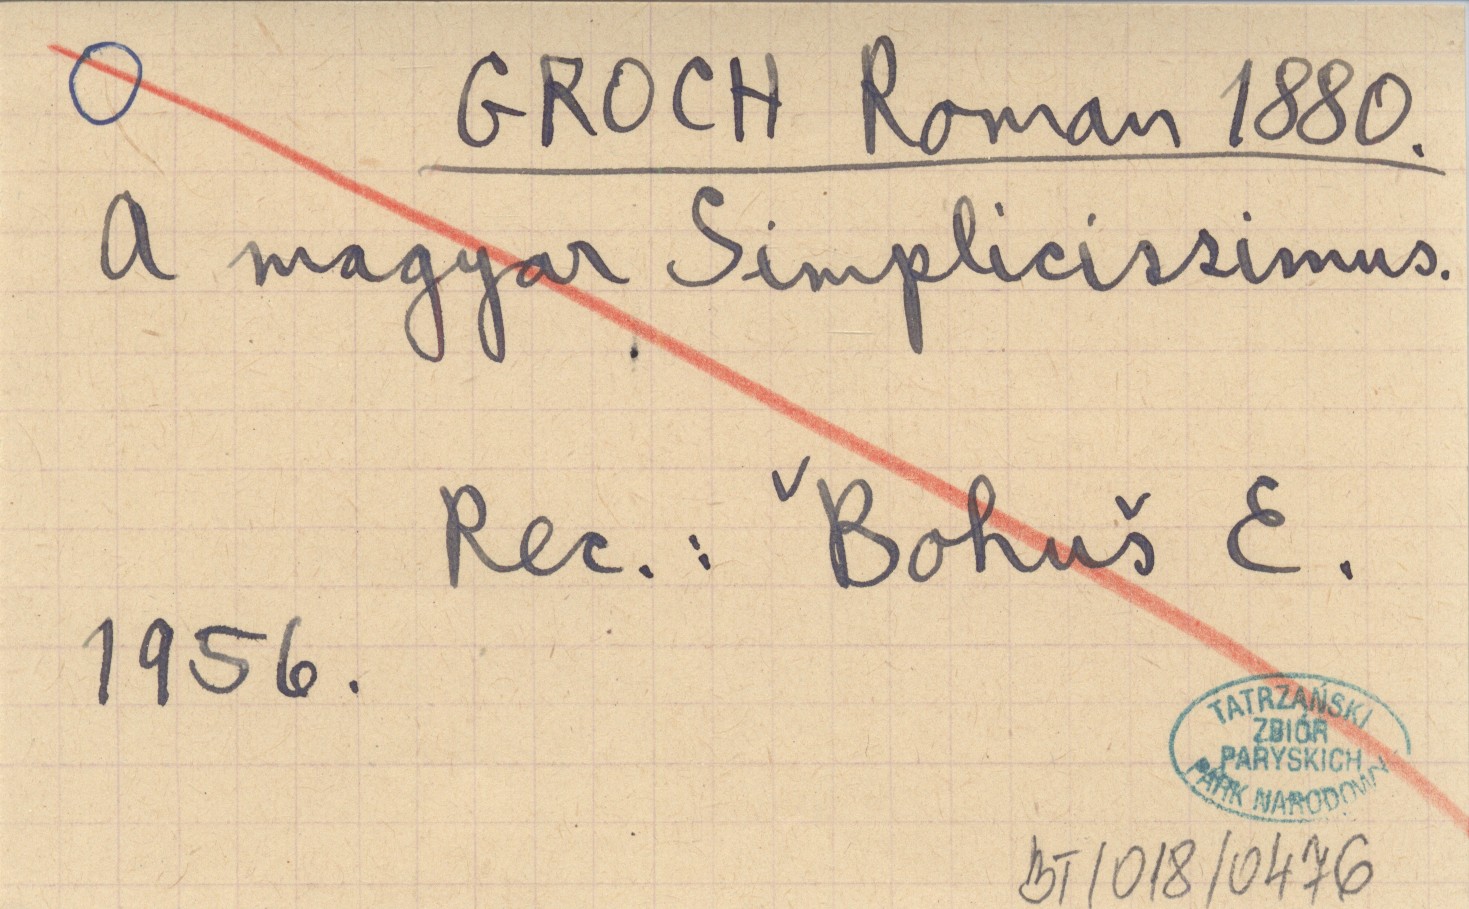 GROCH Roman 1880.
A magyar Simplicissimus.
Rec.: Bohuš E.
1956.
TATRZAŃSKI
ZBIÓR
PARYSKICH
PARK NARODOWY
BT/018/0476